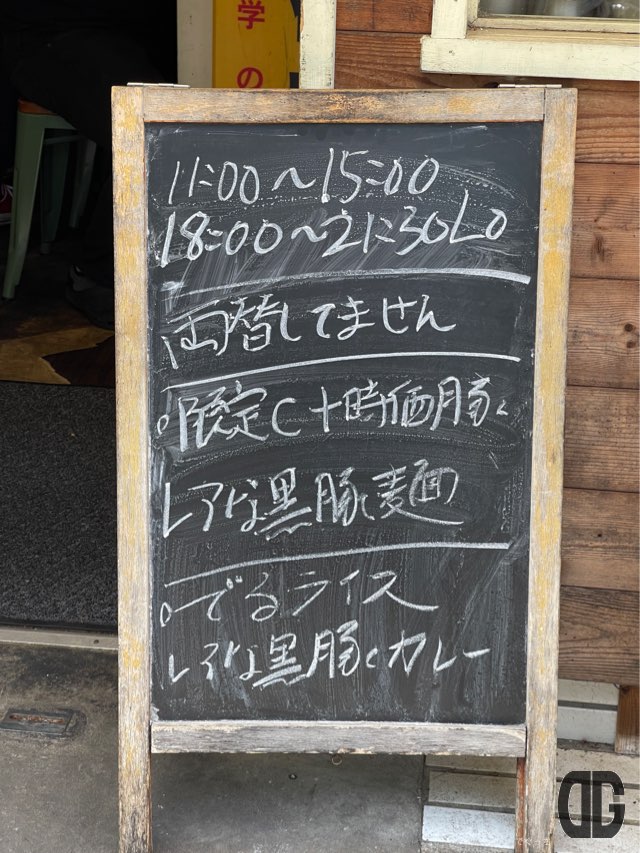 学の
11:00~15:00
18:00~21:30LO
両替してません
。限定C+時価豚。
レアな黒豚麺
。でるライス
レアな黒豚とカレー
DG